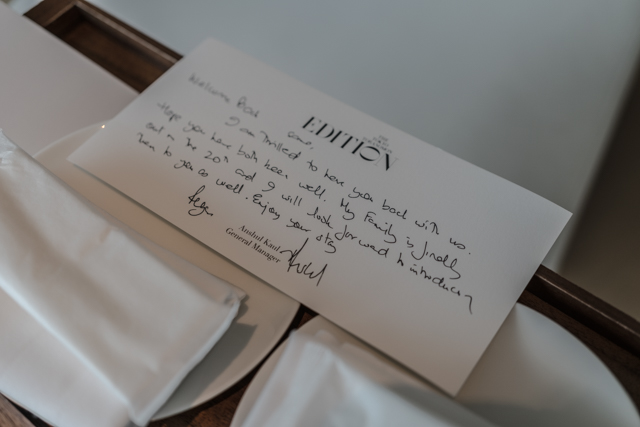 EDITION
Welcome Back
I am thrilled to have you back with us.
Hope you have both been well. My Family is finally
out on the 20th and I will look forward to introducing
them to you as well. Enjoy your stay
Anshul Kaul
General Manager